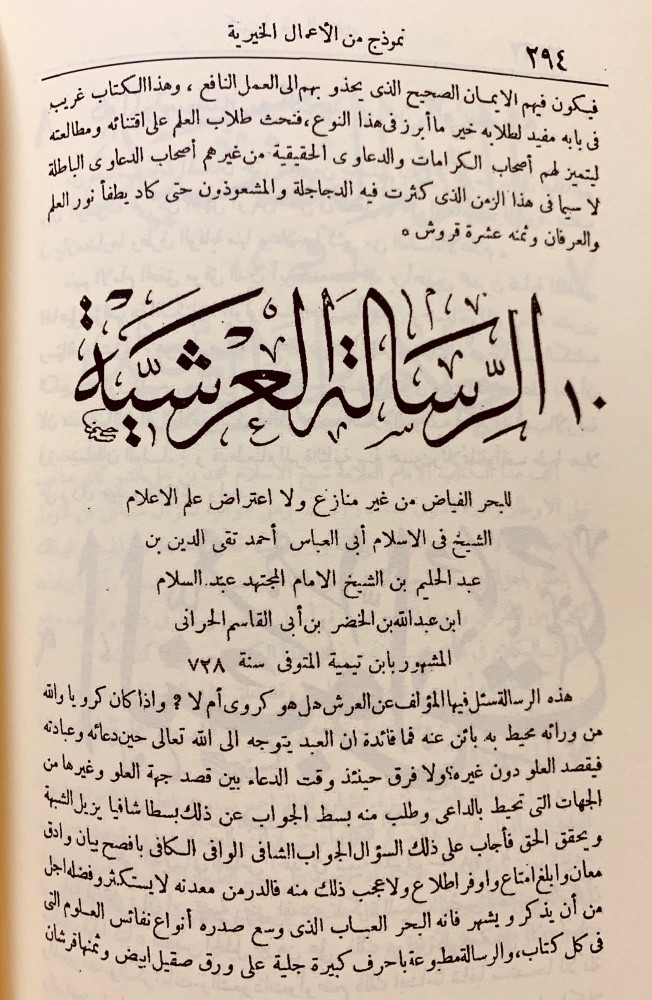 نموذج من الأعمال الخيرية
٢٩٤
فيكون فيهم الايمان الصحيح الذى يحذو بهم الى العمل النافع ، وهذا الكتاب غريب
فى بابه مفيد لطلابه خير ما أبرز فى هذا النوع ، فنحث طلاب العلم على اقتنائه ومطالعته
ليتميز لهم أصحاب الكرامات والدعاوى الحقيقية من غيرهم أصحاب الدعاوى الباطلة
لا سيما فى هذا الزمن الذى كثرت فيه الدجاجلة والمشعوذون حتى كاد يطفأ نور العلم
والعرفان وثمنه عشرة قروش ٥
١٠ الرسالة العرشية
للبحر الفياض من غير منازع ولا اعتراض علم الاعلام
الشيخ فى الاسلام أبى العباس أحمد تقى الدين بن
عبد الحليم بن الشيخ الامام المجتهد عبد السلام
ابن عبد الله بن الخضر بن أبى القاسم الحرانى
المشهور بابن تيمية المتوفى سنة ٧٢٨
هذه الرسالة سئل فيها المؤلف عن العرش هل هو كروى أم لا ؟ واذا كان كرويا والله
من ورائه محيط به بائن عنه فما فائدة ان العبد يتوجه الى الله تعالى حين دعائه وعبادته
فيقصد العلو دون غيره؟ ولا فرق حينئذ وقت الدعاء بين قصد جهة العلو وغيرها من
الجهات التى تحيط بالداعى وطلب منه بسط الجواب عن ذلك بسطا شافيا يزيل الشبهة
ويحقق الحق فأجاب على ذلك السؤال الجواب الشافى الوافى الكافى بافصح بيان وادق
معان وابلغ امتاع واوفر اطلاع ولا عجب ذلك منه فالدر من معدنه لا يستكثر وفضله اجل
من أن يذكر ويشهر فانه البحر العباب الذى وسع صدره أنواع نفائس العلوم التى
فى كل كتاب ، والرسالة مطبوعة باحرف كبيرة جلية على ورق صقيل ابيض وثمنها قرشان